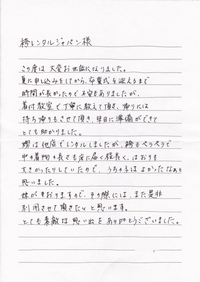 袴レンタルジャパン様
この度は大変お世話になりました。
夏に申し込みをしてから、卒業式を迎えるまで
時間が長かったので不安もありましたが、
着付教室で丁寧に教えて頂き、帰りには
持ち帰りもさせて頂き、当日に準備ができて
とても助かりました。
姪は他店でレンタルしましたが、袴もペラペラで
中の着物の長さも床に届く程長く、はおりも
大きかったりしていたので、うちの子はよかったなあと
思いました。
妹がおりますので、その際には、また是非
利用させて頂きたいと思います。
とても素敵な思い出をありがとうございました。